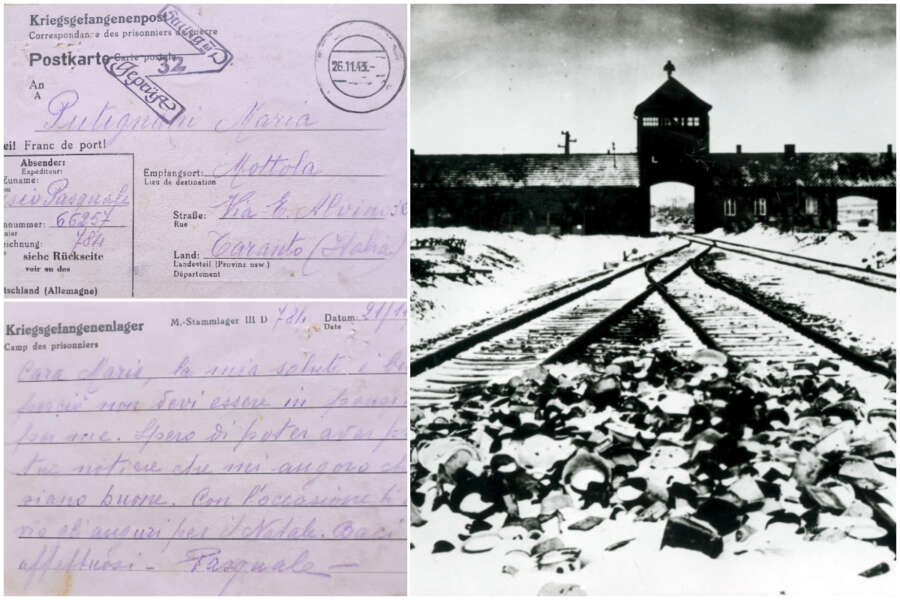 Kriegsgefangenenpost
Correspondance des prisonniers de guerre
Postkarte Carte postale
Geprüft
32
26.11.43.-
An
A
Putignani Maria
eil Franc de port!
Absender:
Expéditeur:
Zuname:
Pasquale
nnummer: 66257
chnung: 784
siehe Rückseite
voir au dos
tschland (Allemagne)
Empfangsort: Mottola
Lieu de destination
Straße: Via E. Alvino
Rue
Land: Taranto (Italia)
Landesteil (Provinz usw.)
Département
Kriegsgefangenenlager
Camp des prisonniers
M.-Stammlager III D 784
Datum: 21/11
Date
Cara Maria, la mia salute è
perciò non devi essere in
per me. Spero di poter aver
tue notizie che mi auguro
siano buone. Con l'occasione ti
gli auguri per il Natale. Baci
affettuosi - Pasquale -